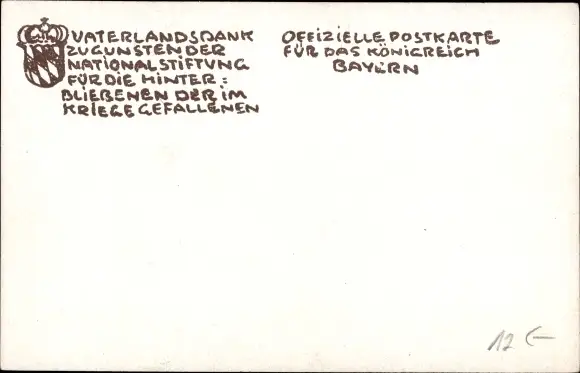 VATERLANDSDANK
ZUGUNSTEN DER
NATIONALSTIFTUNG
FÜR DIE HINTER:
BLIEBENEN DER IM
KRIEGE GEFALLENEN
OFFIZIELLE POSTKARTE
FÜR DAS KÖNIGREICH
BAYERN
12